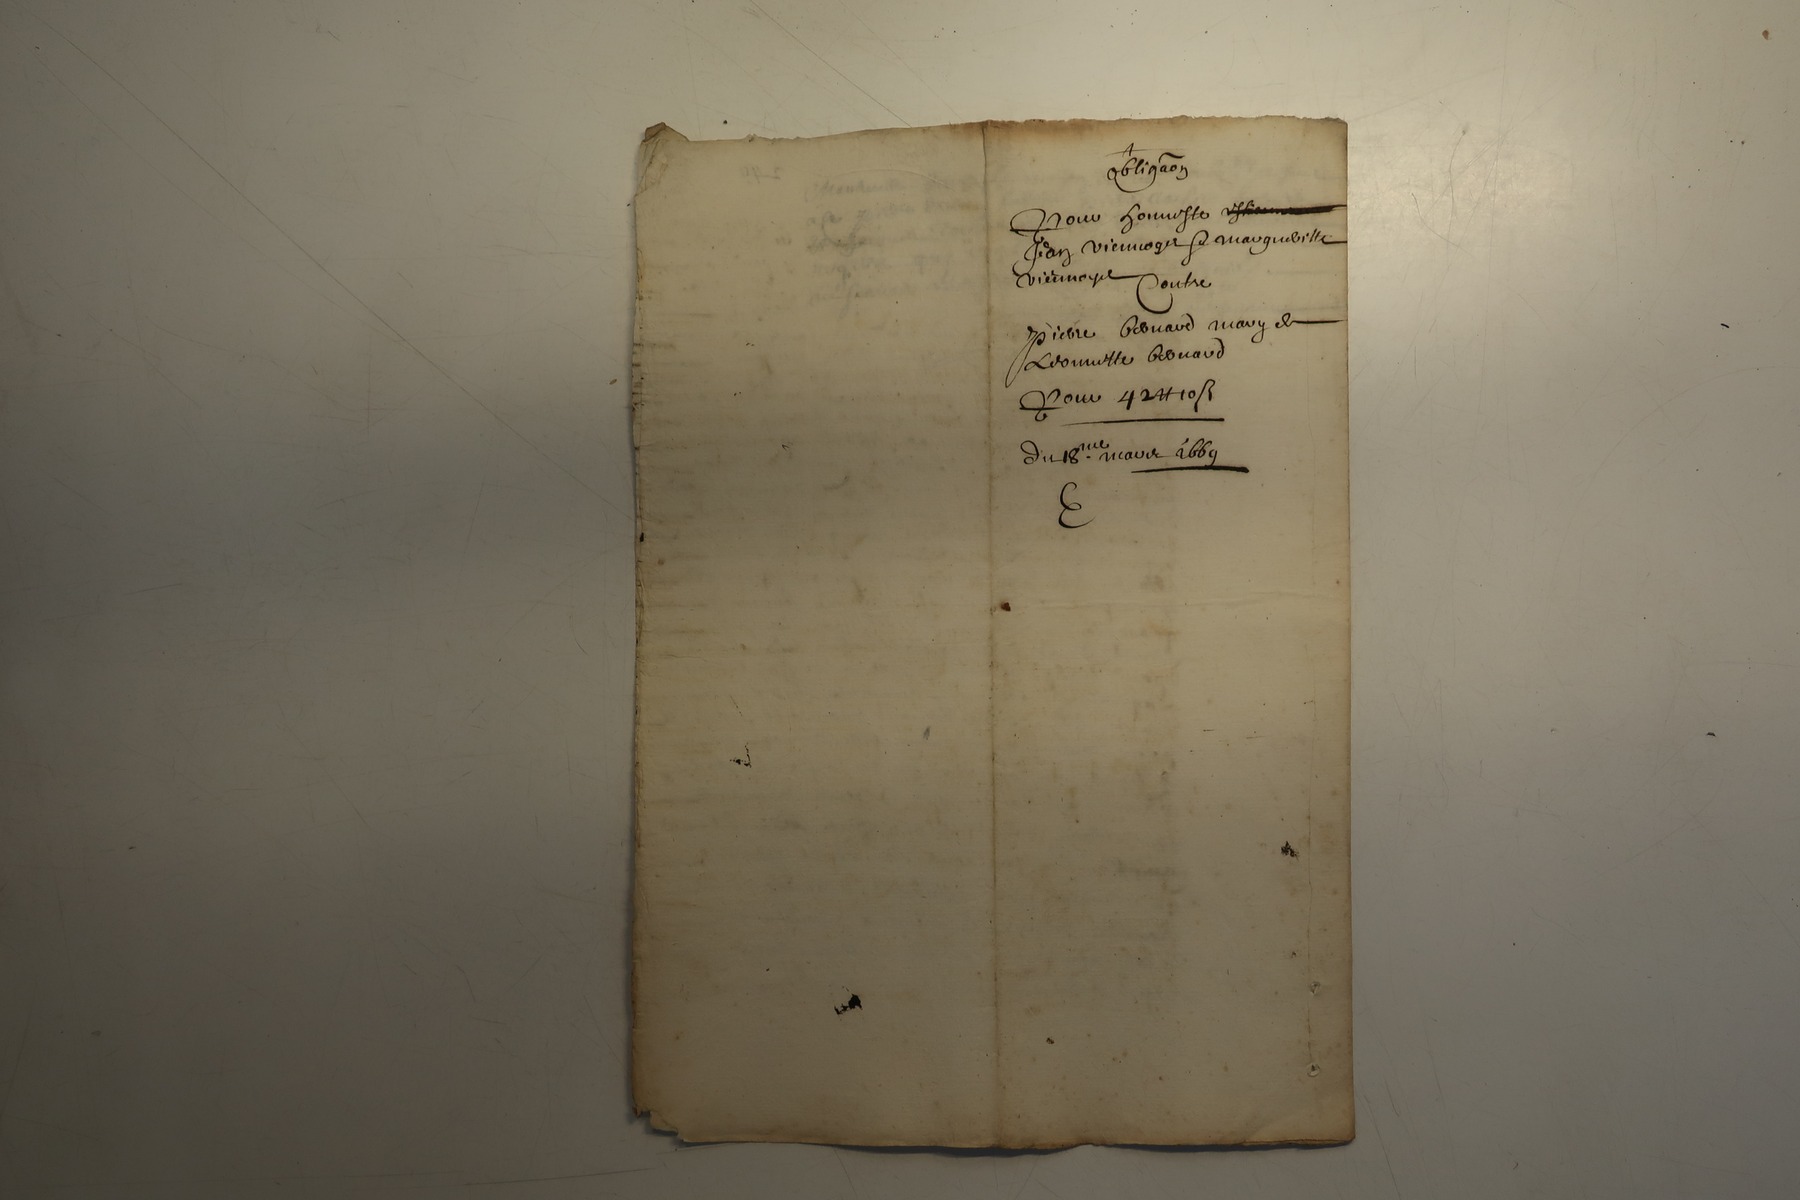 obligãon
Pour honneste
Jean viennoger
viennoger Contre
pierre benard mary de
Leonnette benard
Pour 42tt 10ß
Du 18.me mars 1669